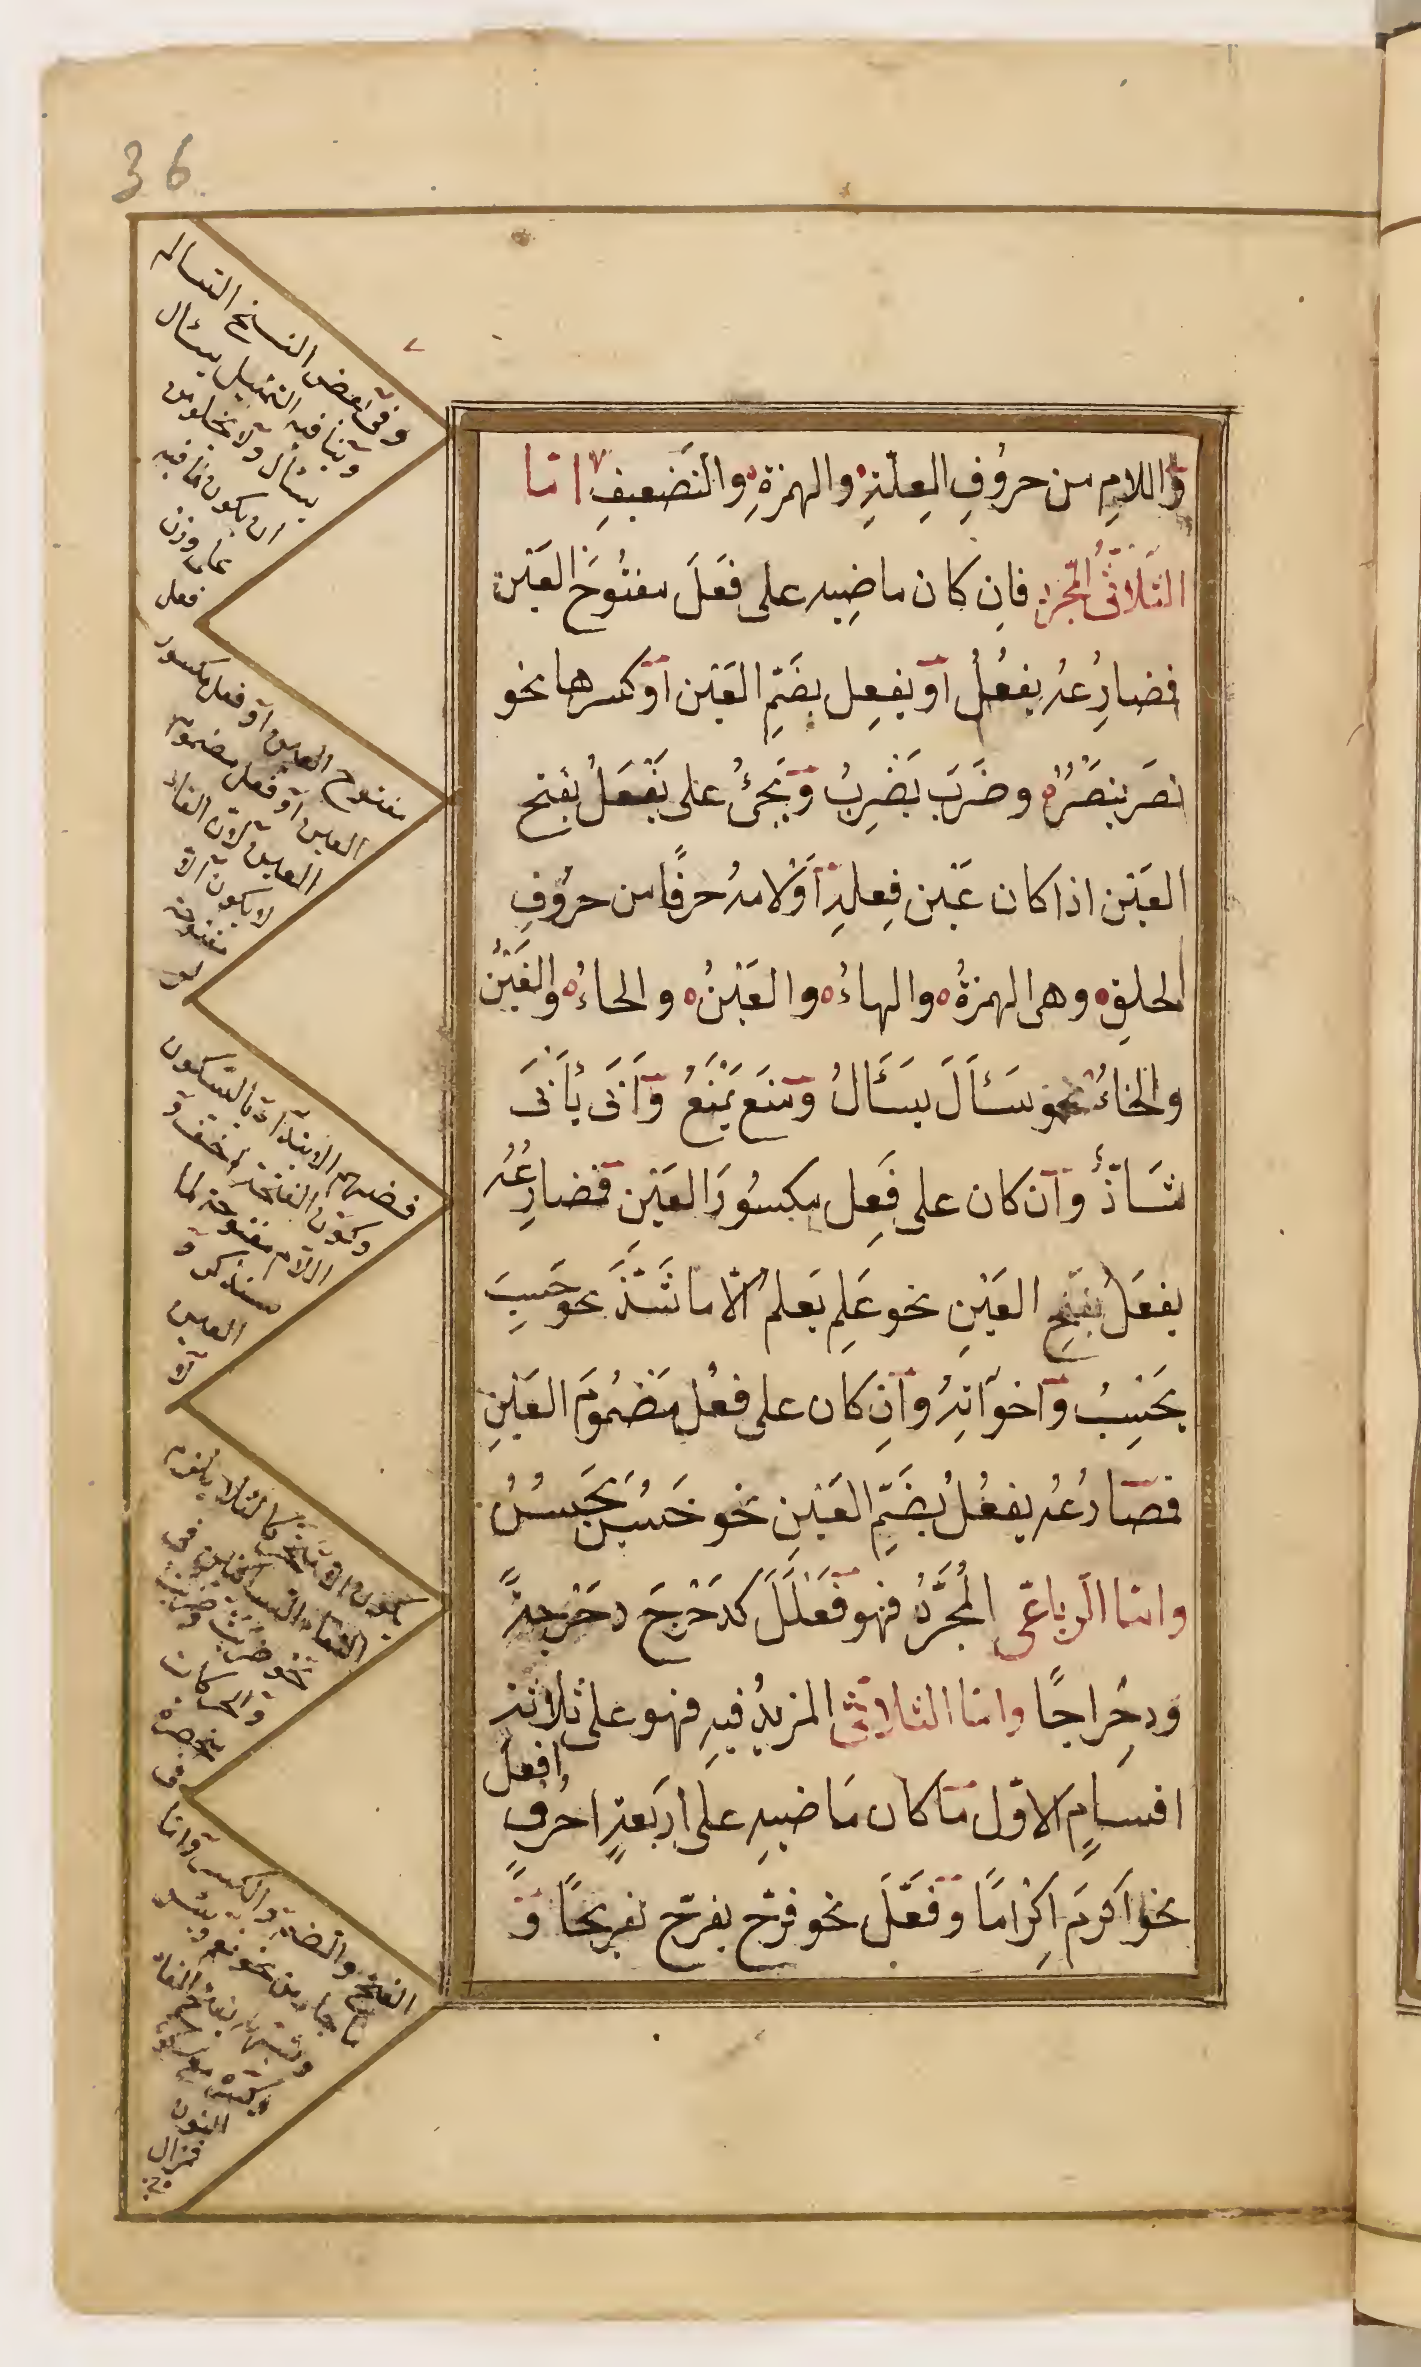 36
واللامِ من حروُفِ العِلّةِ والهمزةِ والتَضعيفِ امّا
الثلاثىُّ المجّرد فاِن كان ماضِيه على فَعَلَ مفتُوحَ العَيْن
فمضارِعُه يفعُلُ اَو يفعِل بضَمِّ العَيْن اَو كسرها نحو
نصَر ينصُرُ وضَرَبَ يَضْرِبُ وَيَجئُ على يَفْعَلُ بفتح
العَيْن اذا كان عَيْن فِعلهِ اَوْلامهُ حرفًا من حروُفِ
الحلقِ وهى الهمزةُ والهاءُ والعَيْنُ والحاءُ والغَيْنُ
والخاءُ نحو سَئَاَلَ يسَئَالُ وَمنَع يَمْنَعُ وَاَبَى يأبَى
شَاذّ وَاِن كان على فَعِل مكسُورَ العَيْنِ فمضارِعُه
يفعَلُ بفتحِ العَيْنِ نحو عَلِم يَعلم اِلّا ما شَذَّ نحو حَسِبَ
يَحْسِبُ وَاخواتِهُ وَاِن كان على فعُل مَضْمُومَ العَيْنِ
فمضارعُه يفعُلُ بضَمِّ العَيْنِ نحو حَسُن يَحْسُنُ
وامّا الرباعّى المُجرَّدُ فهو فَعْلَلَ كدَحْرَجَ دحرجةً
ودِحْراجًا وامّا الثلاثّى المزيدُ فيهِ فهو على ثلاثة
اقسامٍ الاوّل مَا كان مَاضيهِ على اربَعةِ احرُفٍ
افعل
نحو اَكرمَ اِكْرامًا وَفعّلَ نحو فرّح يفرّح تفريحًا وَ
وفى بعض النسخ السالم
وينافيه التمثيل يسئال
يسئال ولا يخلو من
ان يكون مافيه
على وزن
فعل
مفتوح العين او فعل مكسور
العين او فعل مضموم
العين لاَن الفاء
لا يكون الّا
مفتوحة
وكون الفتحة اخف و
اللام مفتوحة لما
سنذكر و
العين
لا
التقاء الساكنين فى
نحو ضربت
والحركات
منحصرة
فى
الفتح والضم والكسر وامّا
ما جاء من نحو نعم وبئس
النون
فمزال